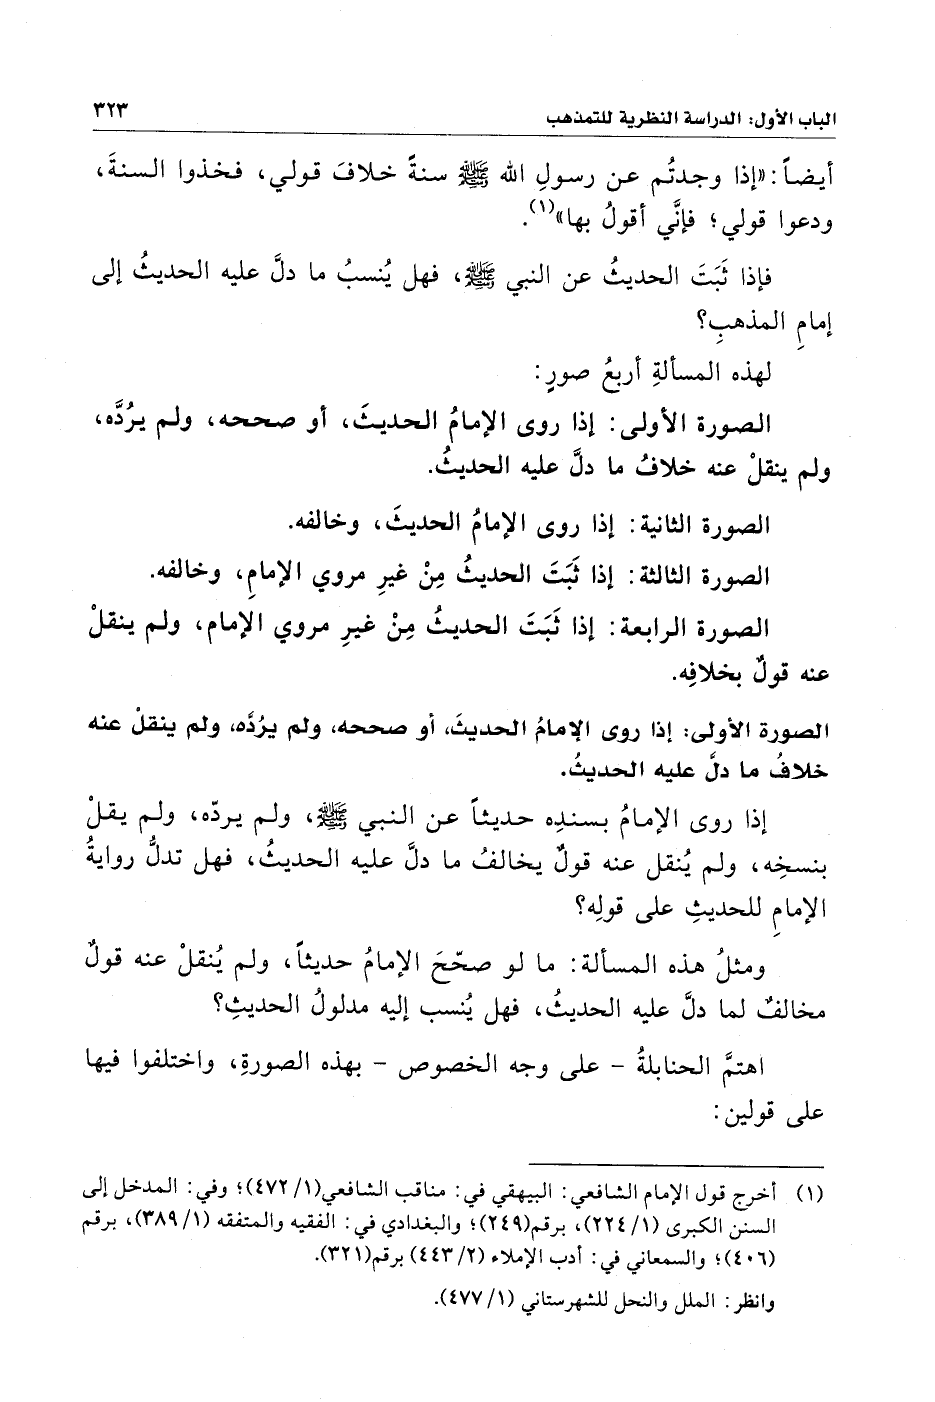 الباب الأول: الدراسة النظرية للتمذهب ٣٢٣
أيضاً: «إذا وجدتُم عن رسولِ الله ﷺ سنةً خلافَ قولي، فخذوا السنةَ،
ودعوا قولي؛ فإنَّي أقولُ بها»(١).
فإذا ثَبَتَ الحديثُ عن النبي ﷺ، فهل يُنسبُ ما دلَّ عليه الحديثُ إلى
إمامِ المذهبِ؟
لهذه المسألةِ أربعُ صورٍ:
الصورة الأولى: إذا روى الإمامُ الحديثَ، أو صححه، ولم يرُدَّه،
ولم ينقلْ عنه خلافُ ما دلَّ عليه الحديثُ.
الصورة الثانية: إذا روى الإمامُ الحديثَ، وخالفه.
الصورة الثالثة: إذا ثَبَتَ الحديثُ مِنْ غيرِ مروي الإمامِ، وخالفه.
الصورة الرابعة: إذا ثَبَتَ الحديثُ مِنْ غيرِ مروي الإمام، ولم ينقلْ
عنه قولٌ بخلافِه.
الصورة الأولى: إذا روى الإمامُ الحديثَ، أو صححه، ولم يرُدَّه، ولم ينقلْ عنه
خلافُ ما دلَّ عليه الحديثُ.
إذا روى الإمامُ بسندِه حديثاً عن النبي ﷺ، ولم يردّه، ولم يقلْ
بنسخِه، ولم يُنقل عنه قولٌ يخالفُ ما دلَّ عليه الحديثُ، فهل تدلُّ روايةُ
الإمامِ للحديثِ على قولِه؟
ومثلُ هذه المسألة: ما لو صحّحَ الإمامُ حديثاً، ولم يُنقلْ عنه قولٌ
مخالفٌ لما دلَّ عليه الحديثُ، فهل يُنسب إليه مدلولُ الحديثِ؟
اهتمَّ الحنابلةُ - على وجه الخصوص - بهذه الصورةِ، واختلفوا فيها
على قولين:
(١) أخرج قول الإمام الشافعي: البيهقي في: مناقب الشافعي(١/ ٤٧٢)؛ وفي: المدخل إلى
السنن الكبرى (١/ ٢٢٤)، برقم(٢٤٩)؛ والبغدادي في: الفقيه والمتفقه (١/ ٣٨٩)، برقم
(٤٠٦)؛ والسمعاني في: أدب الإملاء (٢/ ٤٤٣) برقم(٣٢١).
وانظر: الملل والنحل للشهرستاني (١/ ٤٧٧).